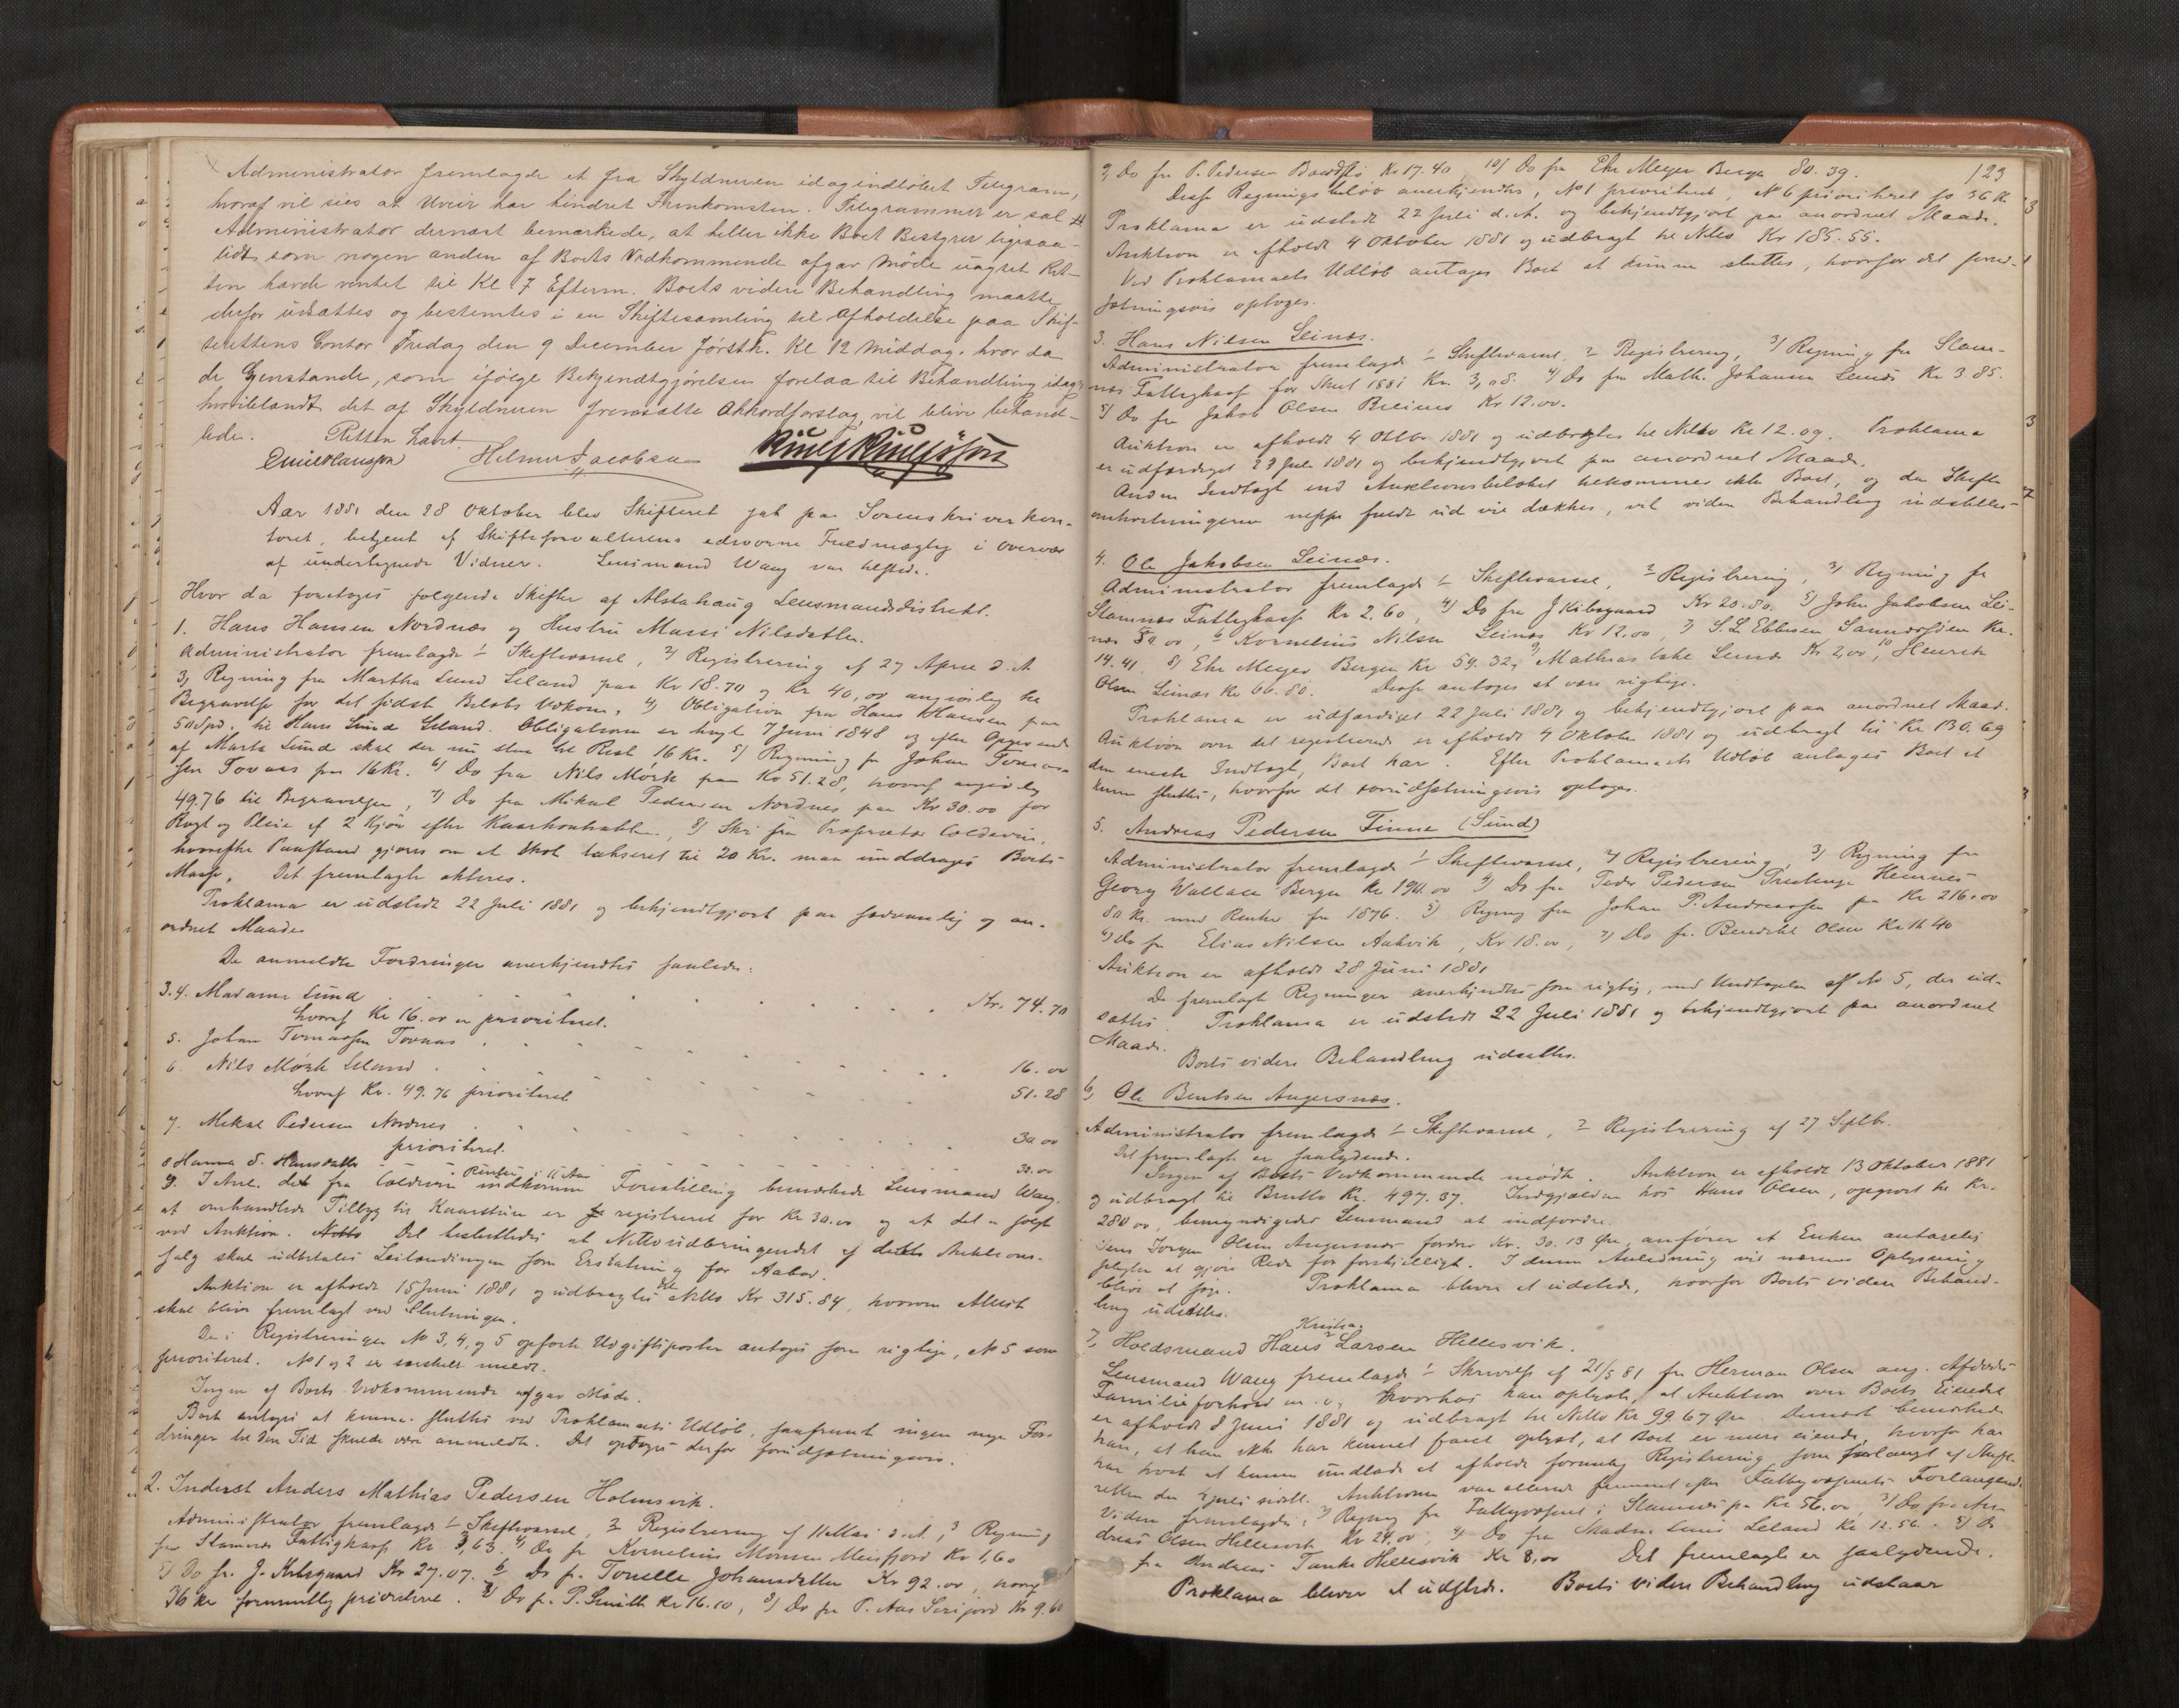 Administrator fremlagde et fra Skyldneren idag indløbet Telegram,
hvoraf vil sees at Uveir har hindret Fremkomsten. Telegrammet er sal. #
Administrator dernæst bemærkede, at heller ikke Boet Bestyrer ligesaa-
lidt som nogen anden af Boets Vedkommende afgav Møde uagtet Ret-
ten havde ventet til Kl. 7 Efterm. Boets videre Behandling maatte
derfor udsættes og bestemtes i en Skiftesamling til Afholdelse paa Skif-
terettens Contor Fredag den 9 December førstk. Kl 12 Middag, hvor da
de Gjenstande, som ifølge Bekjendtgjørelsen forelaa til Behandling idag,
hvoriblandt det af Skyldneren fremsatte Akkordforslag vil blive behand-
lede. Retten hævet
Emil Hansson Helmer Jacobsen Knut Knutssøn
Aar 1881 den 28 Oktober blev Skifteret sat paa Sorenskriverkon-
toret, betjent af Skifteforvalterens edsvorne Fuldmægtig i Overvær
af undertegnede Vidner. Lensmand Wang var tilstede.
Hvor da foretoges følgende Skifter af Alstahaug Lensmandsdistrikt.
1. Hans Hansen Nordnæs og Hustru Massi Nilsdatter.
Administrator fremlagde 1 Skiftevarsel, 2) Registrering af 27 April d. A
3, Regning fra Martha Lund Leland paa Kr 18.70 og Kr 40,00 angivelig til
Begravelse for det sidste Beløbs Vedkom. 4) Obligation fra Hans Hansen paa
50 Spd. til Hans Lund Leland. Obligationen er tingl. 7 Juni 1848 og efter Opgivende
af Marta Lund skal der nu staa til Rest 16 Kr. 5) Regning fra Johan Tomas-
sen Tovaas paa 16 Kr. 6) Do fra Nils Mørk paa Kr 51.28, hvoraf angivelig
49.76 til Begravelsen, 7) Do fra Mikal Pedersen Nordnes paa Kr 30.00 for
Røgt og Pleie af 2 Kjør efter Kaarkontrakten, 8) Skr. fra Proprietær Coldevin,
hvorefter Paastand gjøres om at Skot takseret til 20 Kr. maa inddrages Boets
Masse. Det fremlagte akteres.
Proklama er udstedt 22 Juli 1881 og bekjendtgjort paa sædvanlig og an-
ordnet Maade
De anmeldte Fordringer anerkjendtes saaledes:
3.4. Madame Lund Kr. 74.70
hvoraf Kr 16.00 er prioriteret.
5. Johan Tomassen Tovaas 16.00
6. Nils Mørk Leland 51.28
hvoraf Kr. 49.76 prioriteret
7. Mikal Pedersen Nordnes 30 00
prioriteret.
8 Hanna S. Hansdatter 30.00
9. I Anl. det fra Coldevin indkomne Forestilling bemærkede Lensmand Wang,
at omhandlede Tillæg til Kaarstuen er registreret for Kr 30.00 og at det er solgt
ved Auktion. Det besluttedes at Nettoudbringendet af dette Auktions-
salg skal udbetales Leilændingen som Erstatning for Aabod.
Auktion er afholdt 15 Juni 1881 og udbragtes til Netto Kr 315.84, hvorom Attest
skal blive fremlagt ved Slutningen.
De i Registreringen No 3, 4, og 5 opførte Udgiftsposter antages som rigtige, No 5 som
prioriteret. No 1 og 2 er særskilt anmeldt.
Ingen af Boets Vedkommende afgav Møde.
Boet antages at kunne sluttes ved Proklamaets Udløb, saafremt ingen nye For-
dringer til den Tid skulde være anmeldte. Det optages derfor forudsætningsvis.
2. Inderst Anders Mathias Pedersen Holmsvik.
Administrator fremlagde 1 Skiftevarsel, 2 Registrering af 11 Mai d. A, 3 Regning
fra Stamnes Fattigkasse Kr 3,63. 4) Do fr. Kornelius Monsen Meisfjord Kr 1,60
5) Do fr. J. Kilsgaard Kr 27.07. 6 Do fr. Tonelle Johansdatter Kr 92.00, hvoraf
36 kr formentlig prioriteret. 7) Do fr. P. Smith Kr 16.10, 8) Do fra P. Aas Kr 9.60
129
9, Do fra P. Pedersen Kr 17.40, 10) Do fra Ehr Meyer Bergen 80.39.
Disse Regningsbeløb anerkjendtes, No 1 prioriteret, No 6 prioriteret for 36 Kr
Proklama er udstedt 22 Juli d. A. og bekjendtgjort paa anordnet Maade.
Auktion er afholdt 4 Oktober 1881 og udbragt til Netto Kr 185.55.
Ved Proklamaets Udløb antages Boet at kunne sluttes, hvorfor det forud-
sætningsvis optages.
3. Hans Nilsen Leinæs.
Administrator fremlagde 1 Skiftevarsel, 2 Registrering, 3) Regning fra Stam-
næs Fattigkasse for Skat 1881 Kr. 3,08. 4) Do fra Math. Johansen Leinæs Kr 3.85
5) Do fra Jakob Olsen Breines Kr 12.00.
Auktion er afholdt 4 Oktbr 1881 og udbragtes til Netto Kr 12.09. Proklama
er udfærdiget 22 Juli 1881 og bekjendtgjort paa anordnet Maade.
Anden Indtægt end Auktionsbeløbet tilkommer ikke Boet, og da Skifte-
omkostningerne neppe fuldt ud vil dækkes, vil videre Behandling indstilles
4. Ole Jakobsen Leinæs.
Administrator fremlagde 1 Skiftevarsel, 2 Registrering, 3) Regning fra
Stamnæs Fattigkasse Kr 2.60, 4) Do fra J Kilsgaard Kr 20.80. 5) John Jakobsen Lei-
næs 50.00, 6 Kornelius Nilsen Leinæs Kr 12.00, 7) S. L Ebbesen Sannæssjøen Kr.
14.41, 8) Ehr Meyer Bergen Kr 59.32, 9) Mathias Leinæs Kr 2,00, 10 Henrik
Olsen Leinæs Kr 66.80. Disse antages at være rigtige.
Proklama er udfærdiget 22 Juli 1881 og bekjendtgjort paa anordnet Maade.
Auktion over det registrerede er afholdt 4 Oktober 1881 og udbragt til Kr 130.69
den eneste Indtægt, Boet har. Efter Proklamaets Udløb antages Boet at
kunne sluttes, hvorfor det forudsætningsvis optages.
5. Andreas Pedersen Finne (Sund)
Administrator fremlagde 1 Skiftevarsel, 2) Registrering, 3) Regning fra
Georg Wallace Bergen Kr 190.00 4) Do fra Peder Pedersen Hemnes
80 Kr. med Renter fra 1876. 5) Regning fra Johan P. Andreassen paa Kr 216.00
6) Do fra Elias Nilsen Aakvik, Kr 18.00, 7) Do fr. Bendikt Olsen Kr 16 40
Auktion er afholdt 28 Juni 1881
De fremlagte Regninger anerkjendtes som rigtige, med Undtagelse af No 5, der ud-
sættes. Proklama er udstedt 22 Juli 1881 og bekjendtgjort paa anordnet
Maade.
Boets videre Behandling udsættes.
6, Ole Bentsen Angersnæs.
Administrator fremlagde 1 Skiftevarsel, 2 Registrering af 27 Septbr.
Det fremlagte er saalydende.
Ingen af Boets Vedkommende mødte. Auktion er afholdt 13 Oktober 1881
og udbragt til Brutto Kr. 497.37. Indgjælden hos Hans Olsen, opgivet til Kr.
280 00, bemyndigedes Lensmand at indfordre.
Jens Jørgen Olsen Angersnæs fordrer Kr. 30.13 Øre, anfører at Enken antagelig
pligter at gjøre Rede for forskjelligt. I denne Anledning vil nærmere Oplysning
blive at søge. Proklama bliver at udstede, hvorfor Boets videre Behand-
ling udsættes.
7, Holdsmand Hans Kristian Larsen Hellesvik.
Lensmand Wang fremlagde 1 Skrivelse af 21/5 81 fra Herman Olsen ang. Afdødes
Familieforhold m. v. Hvorhos han oplyste, at Auktion over Boets Eiendele
er afholdt 8 Juni 1881 og udbragt til Netto Kr 99.67 Øre. Dernæst bemærkede
han, at han ikke har kunnet faaet oplyst, at Boet er mere eiende, hvorfor han
har troet at kunne undlade at afholde formelig Registrering som forlangt af Skifte-
retten den 4 Juli sidstl. Auktionen var allerede fremmet efter Fattigvæsenets Forlangende.
Videre fremlagdes 2) Regning fra Fattigvæsenet i Stamnes paa Kr 56.00, 3) Do fra An-
dreas Olsen Hellesvik Kr 24.00, 4) Do fra Madm Lund Leland Kr 12.56. 5) Do
fra Andreas Tanke Hellesvik Kr 8,00 Det fremlagte er saalydende.
Proklama bliver at udstede. Boets videre Behandling udstaar